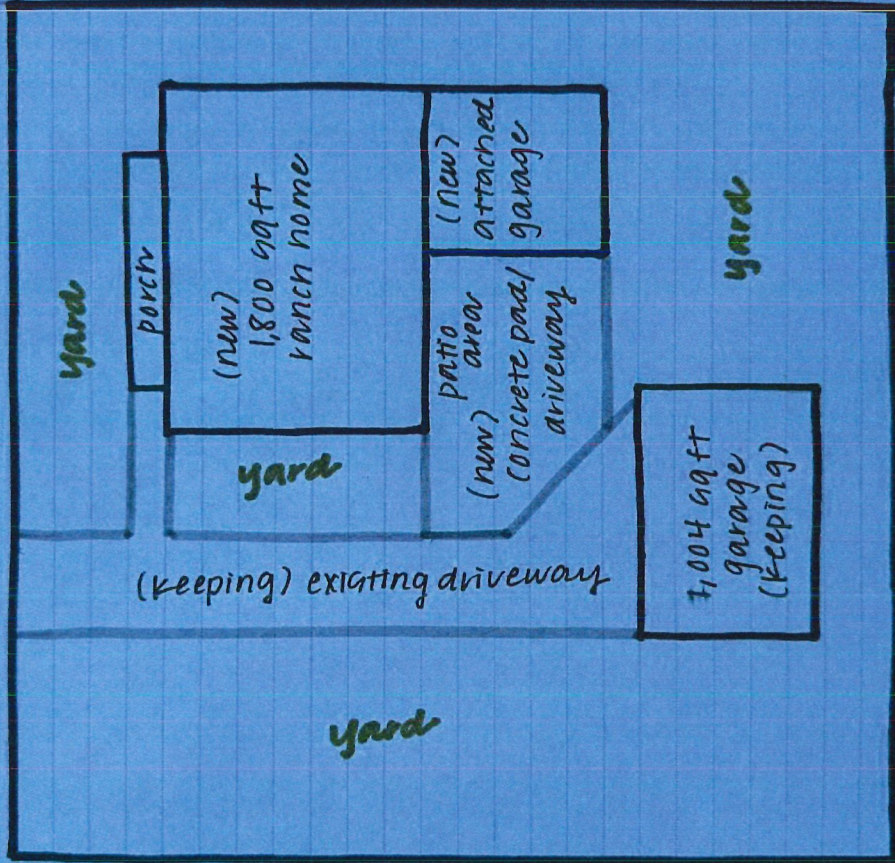 yard
porch
(new)
1,800 sqft
ranch home
(new)
attached
garage
yard
patio
area
(new)
concrete pad/
driveway
yard
(keeping) existing driveway
1,004 sqft
garage
(keeping)
yard